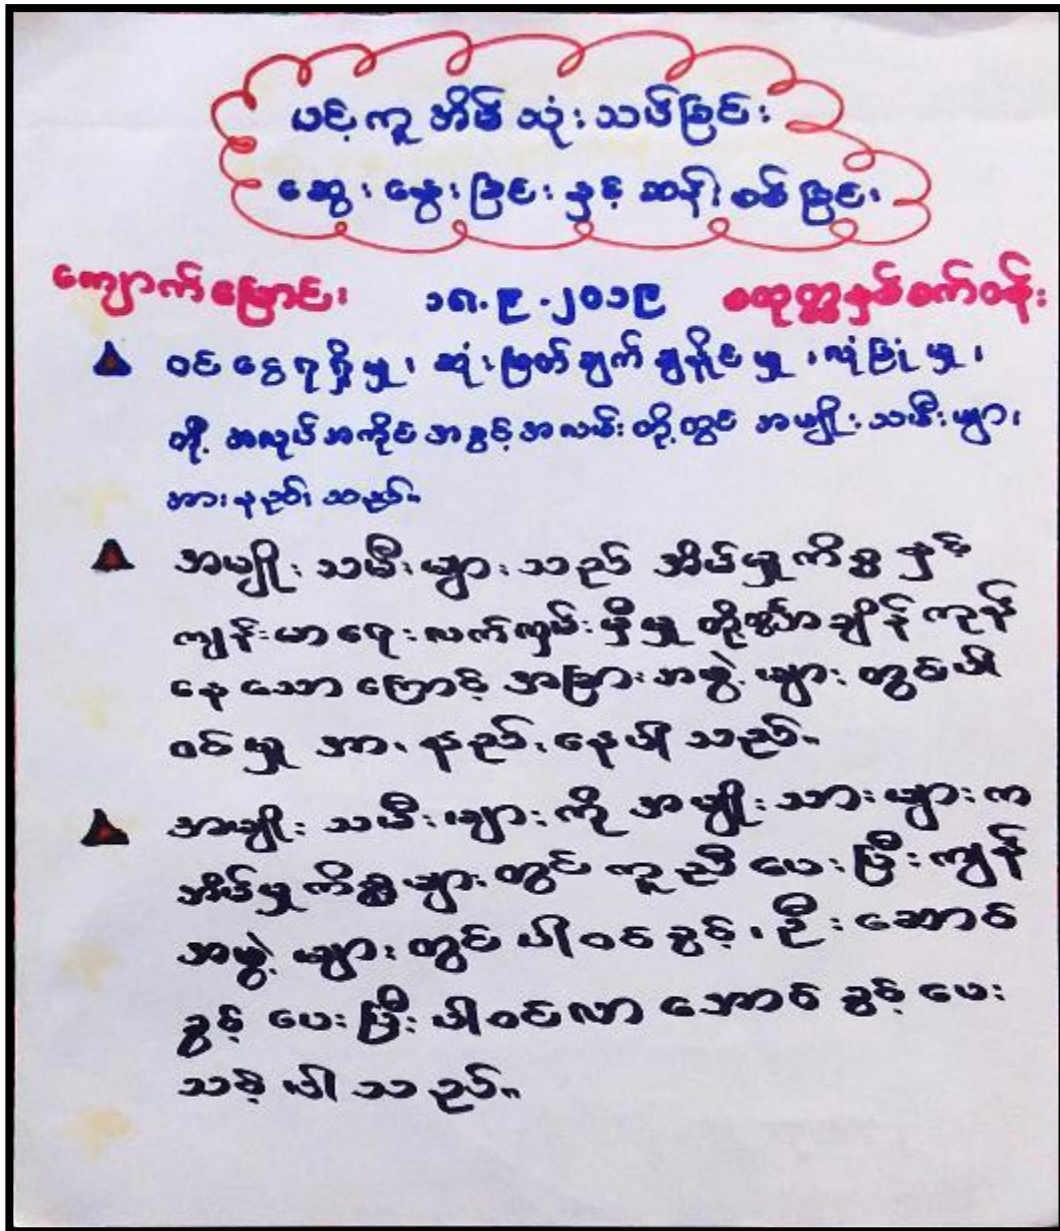 ပင့်ကူအိမ်သုံးသပ်ခြင်း
ဆွေးနွေးခြင်းနှင့် ဆန်းစစ်ခြင်း
ကျောက်မြောင်း ၁၈.၉.၂၀၁၉ စတုတ္ထနှစ်စက်ဝန်း
ဝင်ငွေရရှိမှု၊ ဆုံးဖြတ်ချက်ချနိုင်မှု၊ လုံခြုံမှု၊
တို့ အလုပ်အကိုင်အခွင့်အလမ်းတို့တွင် အမျိုးသမီးများ
အားနည်းသည်။
အမျိုးသမီးများသည် အိမ်မှုကိစ္စနှင့်
ကျန်းမာရေးလက်လှမ်းမှီမှု အချိန်ကုန်
နေသောကြောင့် အခြားအဖွဲ့များတွင်ပါ
ဝင်မှု အားနည်းနေပါသည်။
အမျိုးသမီးများကို အမျိုးသားများက
အိမ်မှုကိစ္စများတွင် ကူညီပေးပြီးကျန်
အဖွဲ့များတွင် ပါဝင်ခွင့်၊ ဦးဆောင်
ခွင့်ပေးပြီး ပါဝင်လာအောင် ခွင့်ပေး
သင့်ပါသည်။